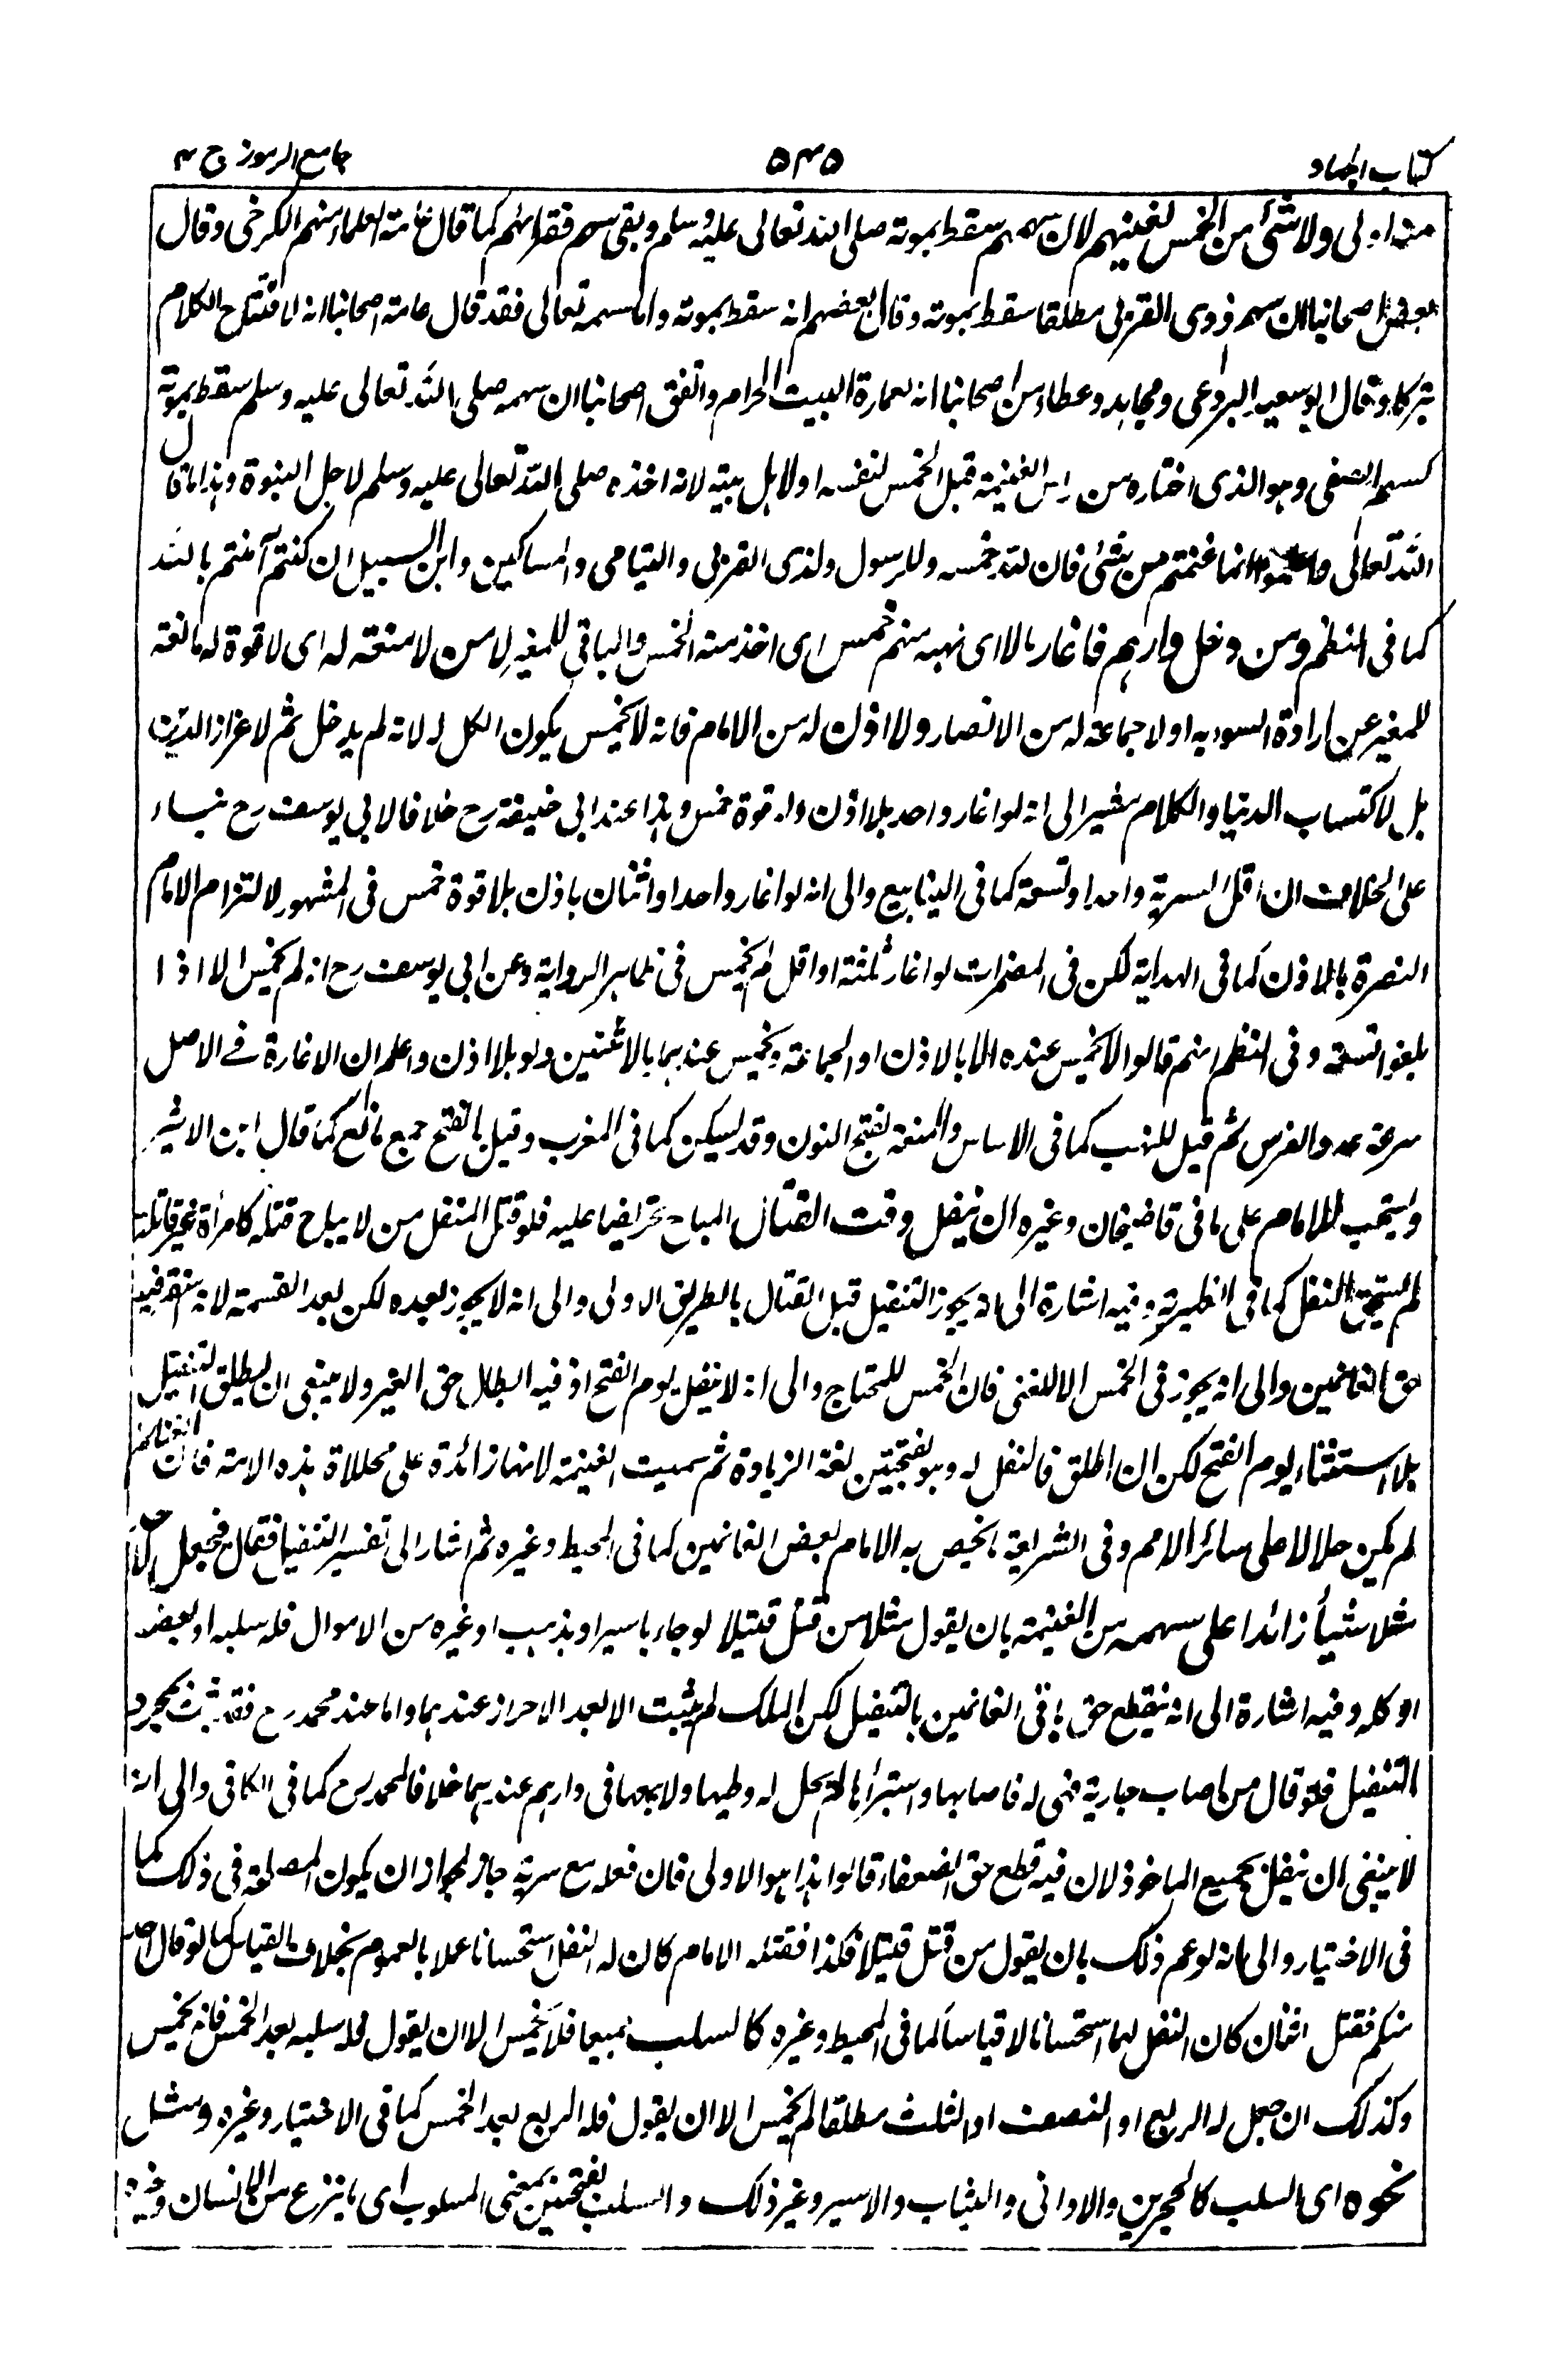 كتاب الجهاد ٥٤٥ جامع الرموز ج ٤
منه اولى ولا شئ من الخمس لغنيهم لان سهمهم سقط بموته صلى الله تعالى عليه وسلم وبقى سهم فقرائهم كما قال عامة العلماء منهم الكرخى وقال
بعض اصحابنا ان سهم ذوى القربى مطلقا سقط بموته وقال بعضهم انه سقط بموته واما سهمه تعالى فقد قال عامة اصحابنا انه لافتتاح الكلام
تبركا وقال ابو سعيد البردعى ومجاهد وعطاء من اصحابنا انه لعمارة البيت الحرام واتفق اصحابنا ان سهمه صلى الله تعالى عليه وسلم سقط بموته
كسهم الصفى وهو الذى اختاره من راس الغنيمة قبل الخمس لنفسه او لاهل بيته لانه اخذه صلى الله تعالى عليه وسلم لاجل النبوة وهذا ما قال
الله تعالى واعلموا انما غنمتم من شئ فان لله خمسه وللرسول ولذى القربى واليتامى والمساكين وابن السبيل ان كنتم آمنتم بالله
كما فى النظم ومن دخل دارهم فاغار مالا اى نهبه منهم خمس اى اخذ منه الخمس والباقى للمغير لا من لا منعة له اى لا قوة له مانعة
للمغير عن ارادة السوء به او لا جماعة له من الانصار ولا اذن له من الامام فانه لا يخمس يكون الكل له لانه لم يدخل ثم لاعزاز الدين
بل لاكتساب الدنيا والكلام مشير الى انه لو اغار واحد بلا اذن وله قوة خمس وهذا عند ابى حنيفة رح خلافا لابى يوسف رح بناء
على الخلاف ان اقل السرية واحد او تسعة كما فى الينابيع والى انه لو اغار واحد او اثنان باذن بلا قوة خمس فى المشهور لالتزام الامام
النصرة بالاذن كما فى الهداية لكن فى المضمرات لو اغار ثلثة او اقل لم يخمس فى ظاهر الرواية وعن ابى يوسف رح انه لم يخمس الا اذا
بلغوا تسعة وفى النظم انهم قالوا لا يخمس عنده الا بالاذن او الجماعة ويخمس عندهما بالاثنين ولو بلا اذن واعلم ان الاغارة فى الاصل
سرعة عدو الفرس ثم قيل للنهب كما فى الاساس والمنعة بفتح النون وقد يسكن كما فى المغرب وقيل بالفتح جمع مانع كما قال ابن الاثير
ويستحب للامام على ما فى قاضيخان وغيره ان ينفل وقت القتال المباح تحريضا عليه فلو قتل المنفل من لا يباح قتله كامرأة غير قاتلة
لم يستحق النفل كما فى الظهيرية وفيه اشارة الى انه يجوز التنفيل قبل القتال بالطريق الاولى والى انه لا يجوز بعده لكن بعد القسمة لانه استقر فيه
حق الغانمين والى انه يجوز فى الخمس الا للغنى فان الخمس للمحتاج والى انه لا ينفل يوم الفتح اذ فيه ابطال حق الغير ولا ينبغى ان يطلق التنفيل
بلا استثناء يوم الفتح لكن ان اطلق فالنفل له وهو بفتحتين لغة الزيادة ثم سميت الغنيمة لانها زائدة على محللات هذه الامة فان الغنائم
لم يكن حلالا على سائر الامم وفى الشريعة ما يخص به الامام بعض الغانمين كما فى المحيط وغيره ثم اشار الى تفسير التنفيل فقال فيجعل لاحد
مثلا شيأ زائدا على سهمه من الغنيمة بان يقول مثلا من قتل قتيلا او جاء باسير او بذهب او غيره من الاموال فله سلبه او بعضه
او كله وفيه اشارة الى انه ينقطع حق باقى الغانمين بالتنفيل لكن الملك لم يثبت الا بعد الاحراز عندهما واما عند محمد رح فقد ثبت بمجرد
التنفيل فلو قال من اصاب جارية فهى له فاصابها واستبرأها لم يحل له وطيها ولا بيعها فى دارهم عندهما خلافا لمحمد رح كما فى الكافى والى انه
لا ينبغى ان ينفل بجميع الماخوذ لان فيه قطع حق الضعفاء قالوا هذا هو الاولى فان فعله مع سرية جاز لجواز ان يكون المصلحة فى ذلك كما
فى الاختيار والى انه لو عم ذلك بان يقول من قتل قتيلا فكذا فقتله الامام كان له النفل استحسانا عملا بالعموم بخلاف القياس كما لو قال احد
منكم فقتل اثنان كان النفل لهما استحسانا لا قياسا كما فى المحيط وغيره كالسلب جميعا فلا يخمس الا ان يقول فله سلبه بعد الخمس فانه يخمس
وكذلك ان جعل له الربع او النصف او الثلث مطلقا لم يخمس الا ان يقول فله الربع بعد الخمس كما فى الاختيار وغيره ومثل
نحوه اى السلب كالحجرين والاوانى والثياب والاسير وغير ذلك والسلب بفتحتين بمعنى المسلوب اى ما ينزع من الانسان وغيره